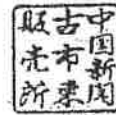 中国新聞
古市東
販売所